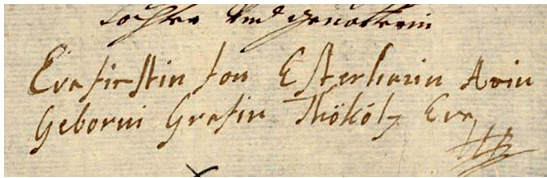 tochter Vnd gevatterin
Evafirstin fon Esterhasin
Geborni Grefin Thököly Eva